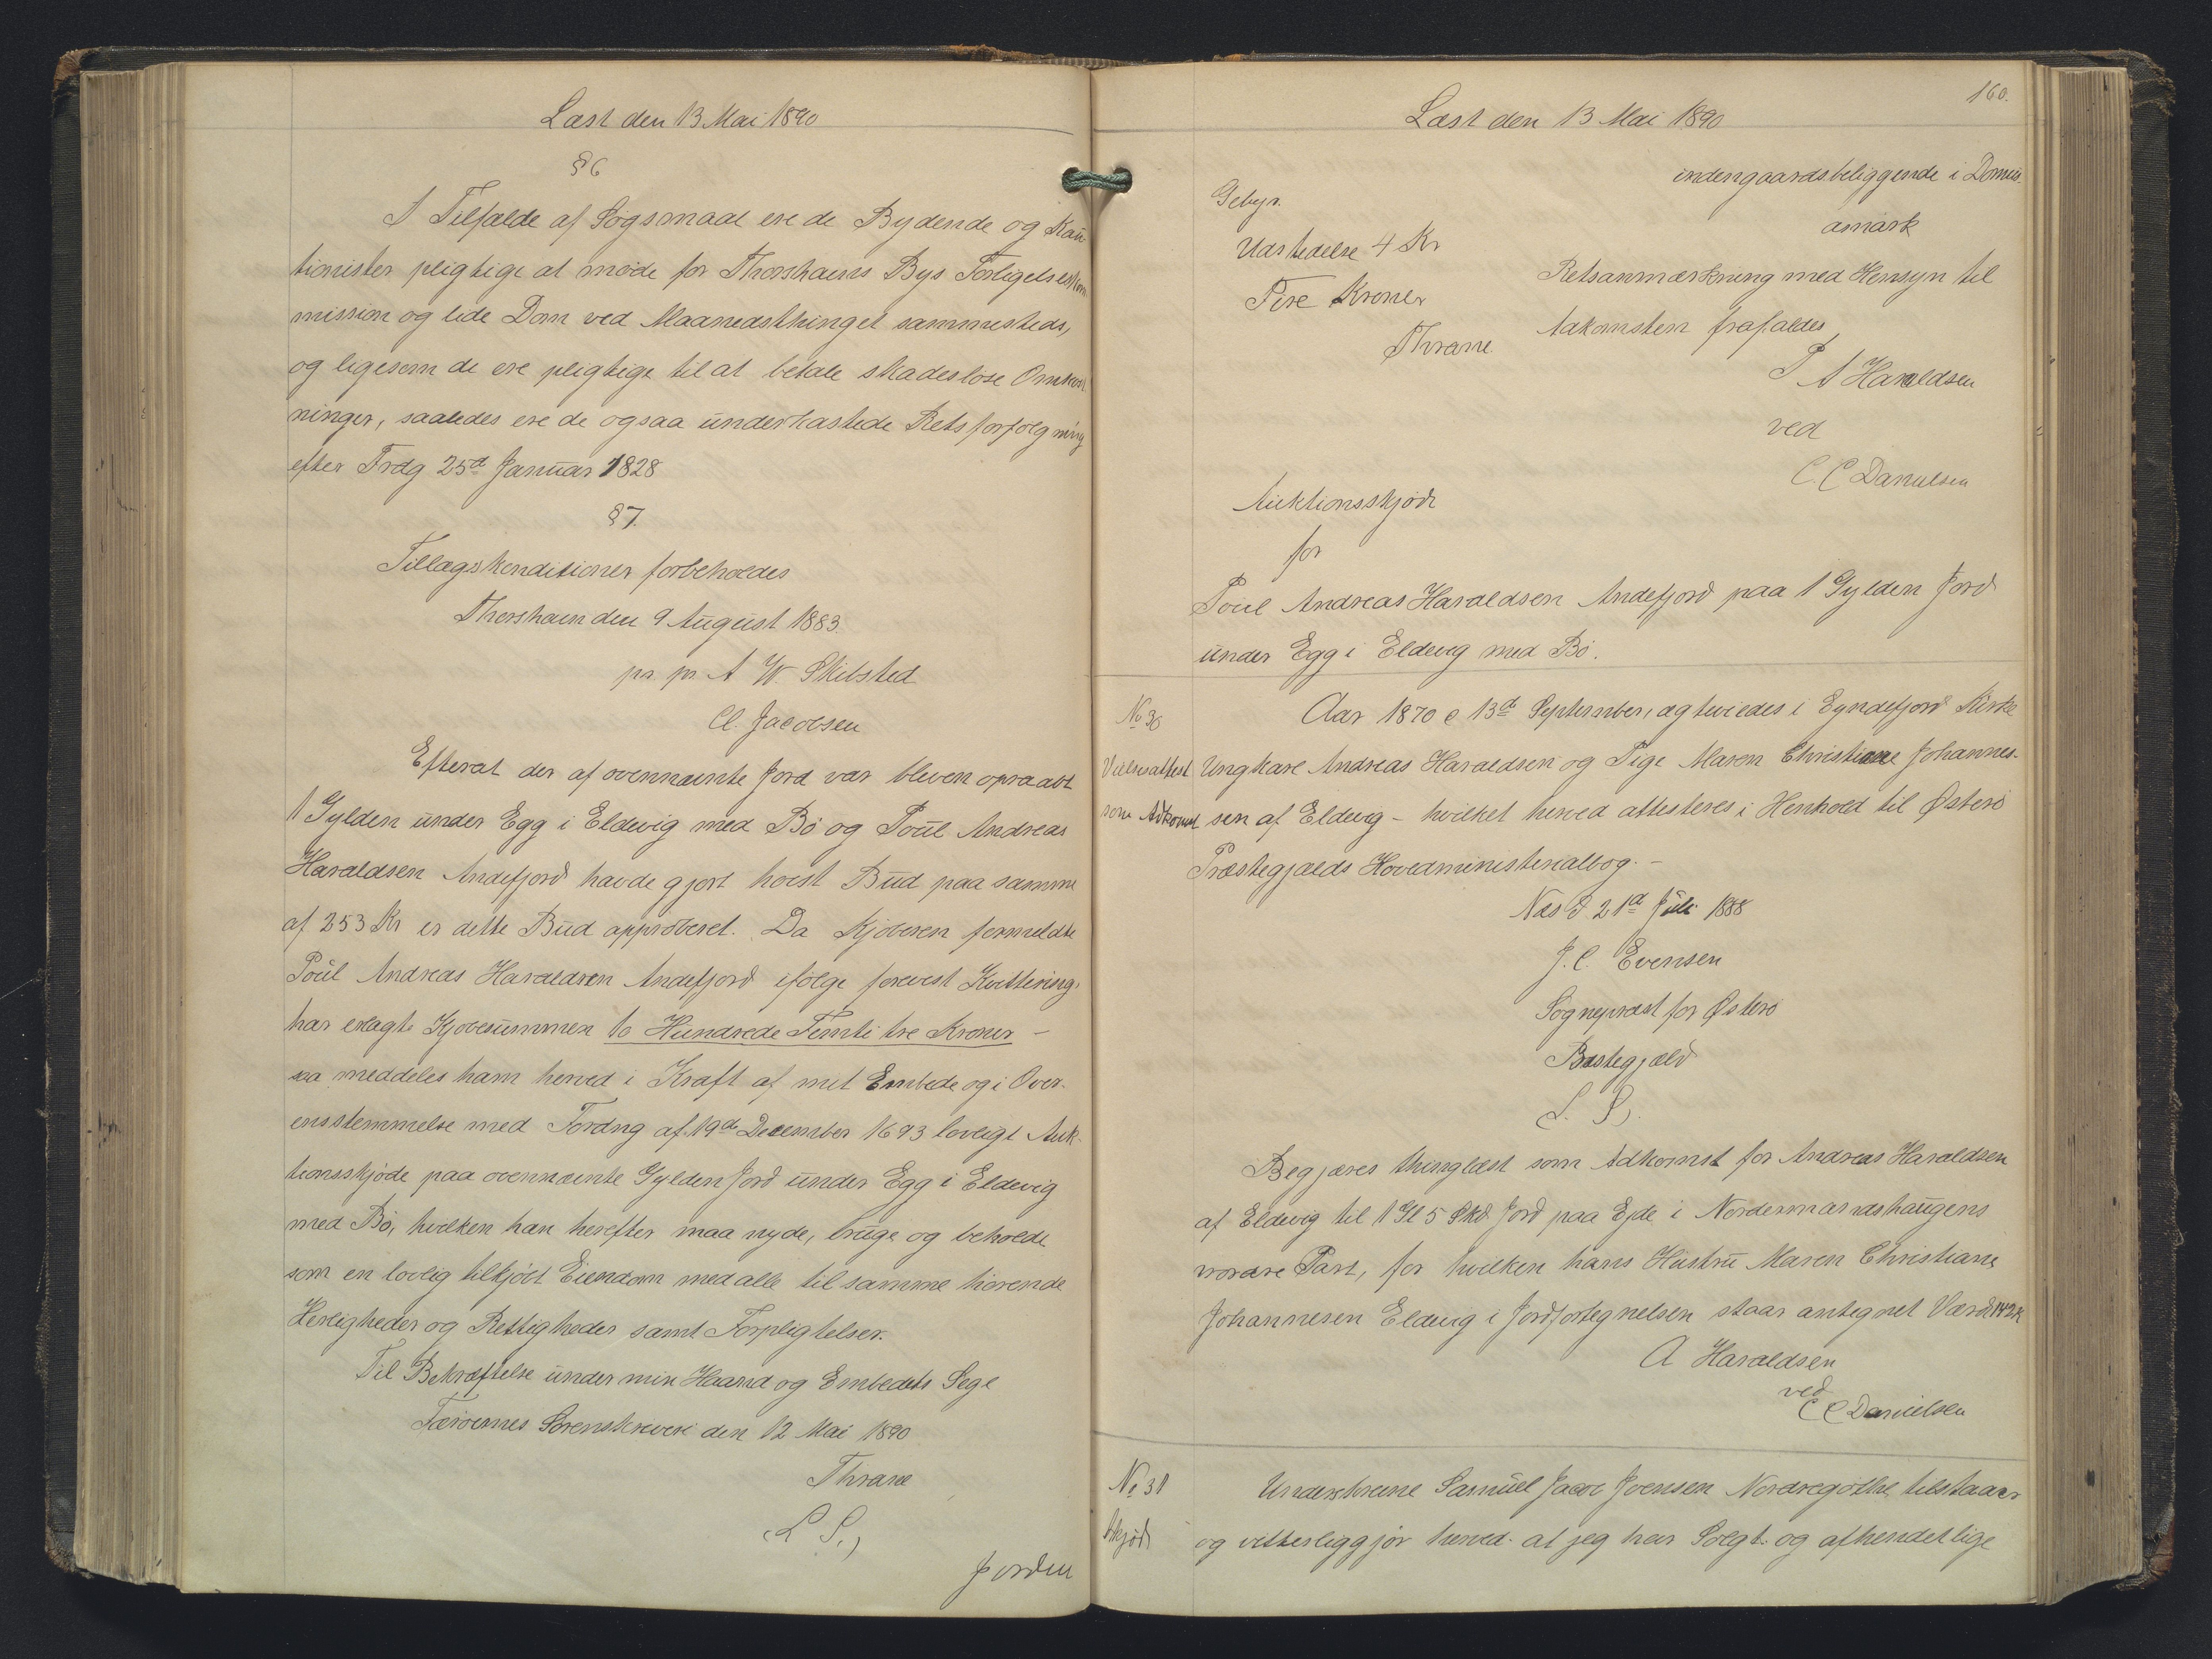 Læst den 13 Mai 1890
§ 6
I Tilfælde af Søgsmaal ere de Bydende og Kau-
tionister pligtige at møde for Thorshavns Bys Forligelseskom
mission og lide Dom ved Maanedsthinget sammesteds,
og ligesom de ere pligtige til at betale skadesløse Omkost
ninger, saaledes ere de ogsaa underkastede Retsforfølgning
efter Frdg 25d Januar 1828
§ 7.
Tillægskonditioner forbeholdes
Thorshavn den 9 August 1883.
pr. pr. A W. Skibsted
Cl. Jacobsen
Efterat der af ovennævnte Jord var bleven opraabt
1 Gylden under Egg i Eldevig med Bø og Poul Andreas
Haraldsen Andefjord havde gjort høist Bud paa samme
af 253 Kr er dette Bud approberet. Da Kjøberen formeldte
Poul Andreas Haraldsen Andefjord ifølge forevist Kvittering
har erlagte Kjøbesummen to Hundrede Femti tre Kroner –
saa meddeles ham herved i Kraft af mit Embede og i Over-
ensstemmelse med Fordng af 19de December 1693 lovligt Auk-
tionsskjøde paa ovennævnte Gylden Jord under Egg i Eldevig
med Bø, hvilken han herefter maa nyde, bruge og beholde
som en lovlig tilkjøbt Eiendom med alle til samme hørende
Herligheder og Rettigheder samt Forpligtelser.
Til Bekræftelse under min Haand og Embedets Segl
Færøernes Sorenskriveri den 12 Mai 1890
Thrane
(L. S.)
Jorden
160.
Læst den 13 Mai 1890
indengaardsbeliggende i Domus
amark
Gebyr.
Udstedelse 4 Kr
Fire Kroner
Thrane
Retsanmærkning med Hensyn til
Adkomsten frafaldes
P A Haraldsen
ved
C. C Danielsen
Auktionsskjøde
for
Poul Andreas Haraldsen Andefjord paa 1 Gylden Jord
under Egg i Eldevig med Bø.
No 30
Vielsesattest
som Adkomst
Aar 1870 e 13d September, ægteviedes i Eyndefjord Kirke
Ungkarl Andreas Haraldsen og Pige Maren Christiane Johannes-
sen af Eldevig – hvilket herved attesteres i Henhold til Østerø
Præstegjælds Hovedministerialbog. –
Næs d 21d Juli 1888
J. C. Evensen
Sognepræst for Østerø
Præstegjæld
L. S.
Begjæres thinglæst som Adkomst for Andreas Haraldsen
af Eldevig til 1 Gl 5 Skd Jord paa Ejde i Nordenmandshaugens
nordre Part, for hvilken hans Hustru Maren Christiane
Johannesen Eldevig i Jordfortegnelsen staar antegnet Værdi 142 K
A Haraldsen
ved
C C Danielsen
No 31
Skjøde
Underskrevne Samuel Jacob Joensen Nordregøthe tilstaaer
og vitterliggjør herved: at jeg har Solgt og afhendet lige